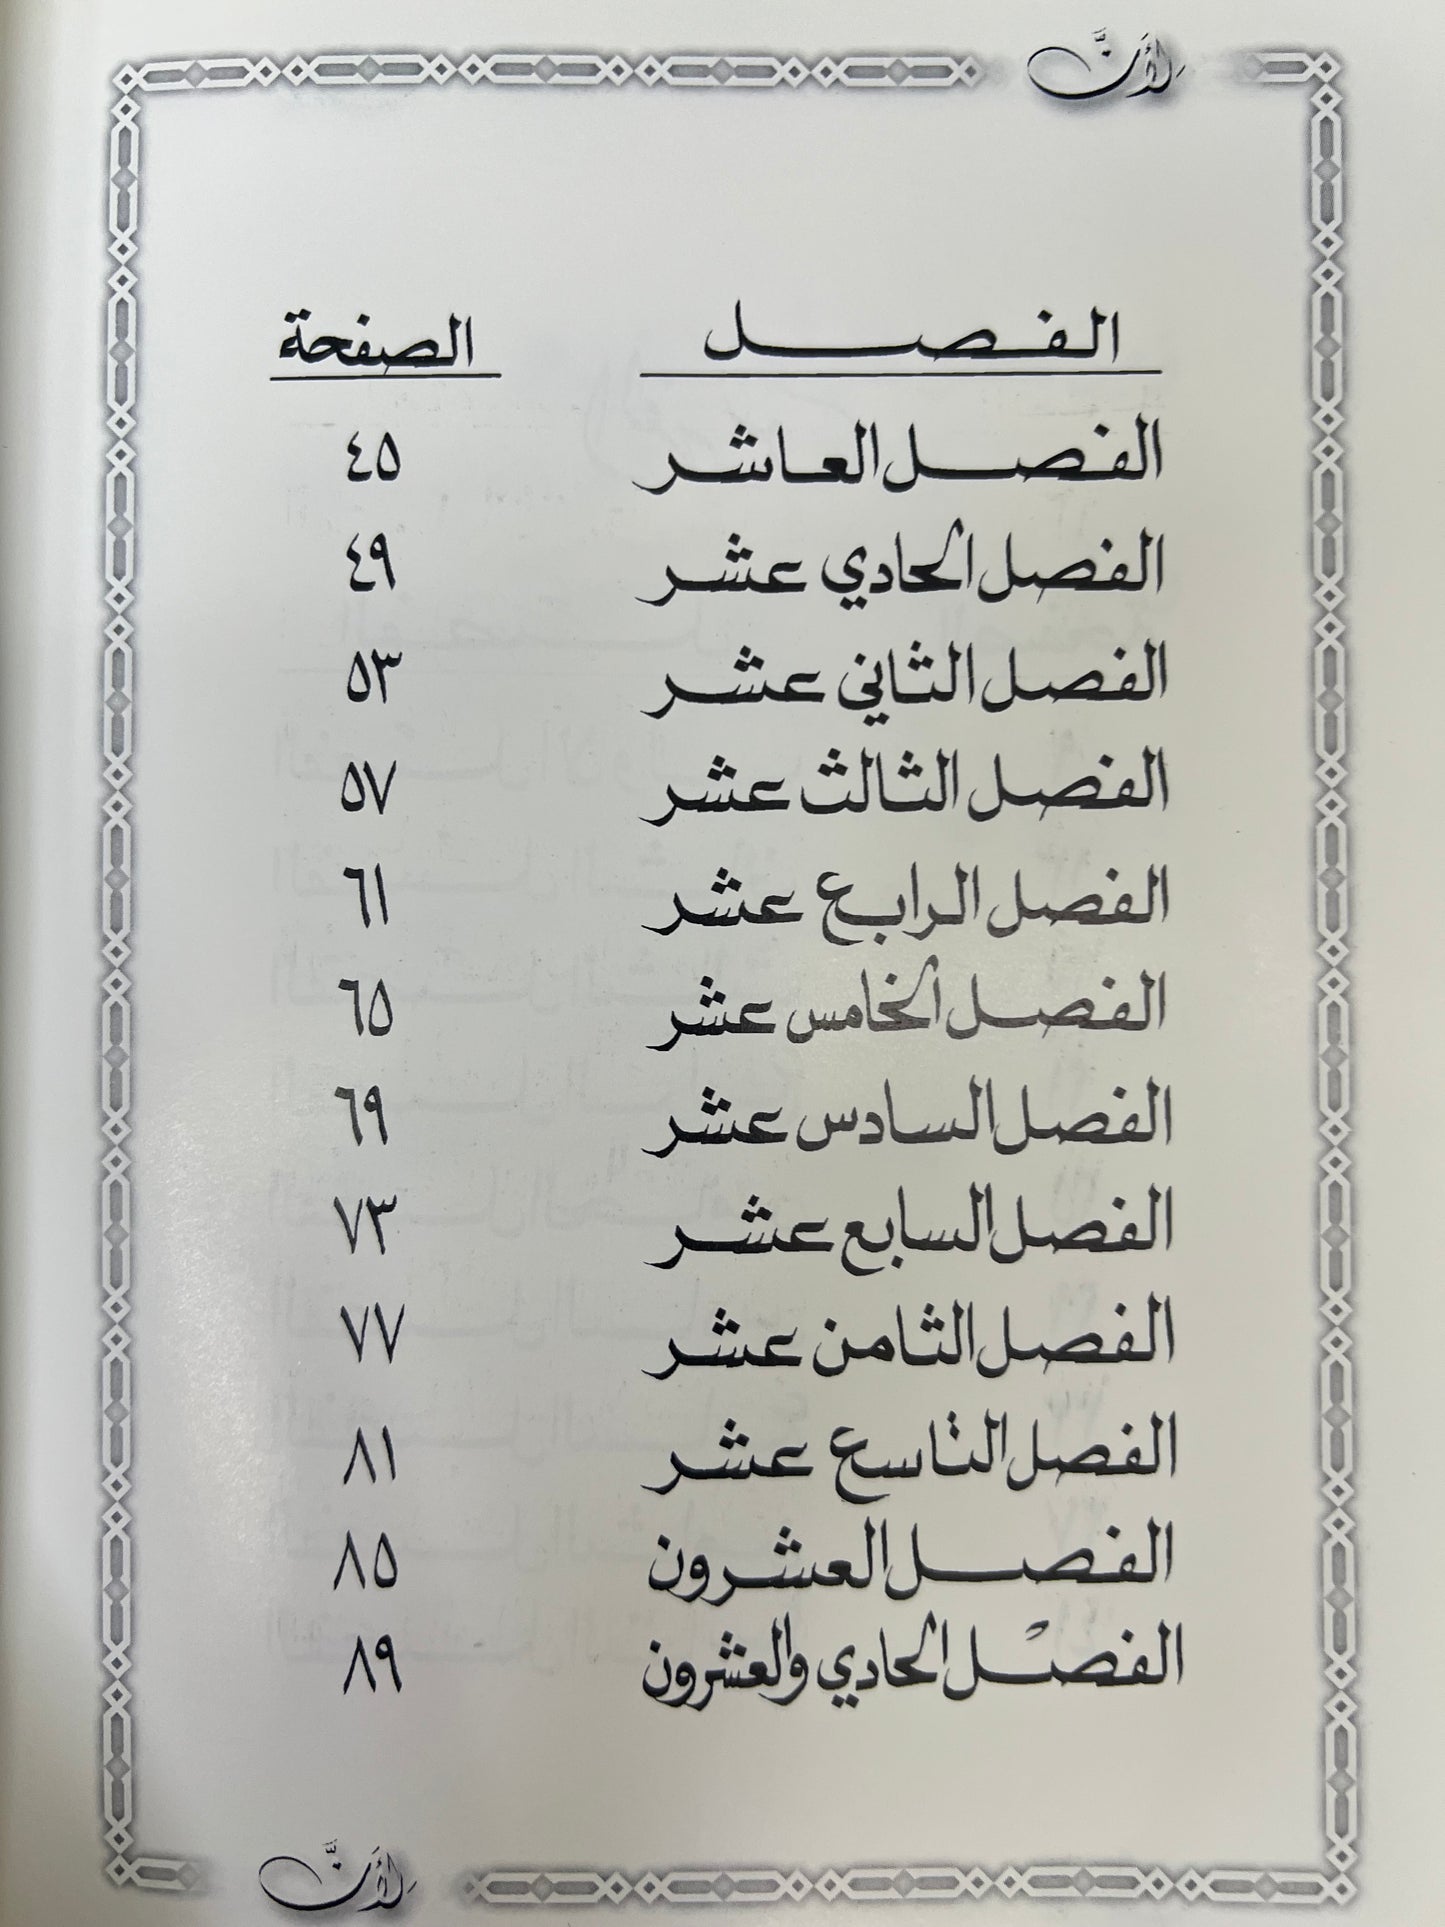 لِأَنَّ
الفصل الصفحة
الفصل العاشر ٤٥
الفصل الحادي عشر ٤٩
الفصل الثاني عشر ٥٣
الفصل الثالث عشر ٥٧
الفصل الرابع عشر ٦١
الفصل الخامس عشر ٦٥
الفصل السادس عشر ٦٩
الفصل السابع عشر ٧٣
الفصل الثامن عشر ٧٧
الفصل التاسع عشر ٨١
الفصل العشرون ٨٥
الفصل الحادي والعشرون ٨٩
لِأَنَّ